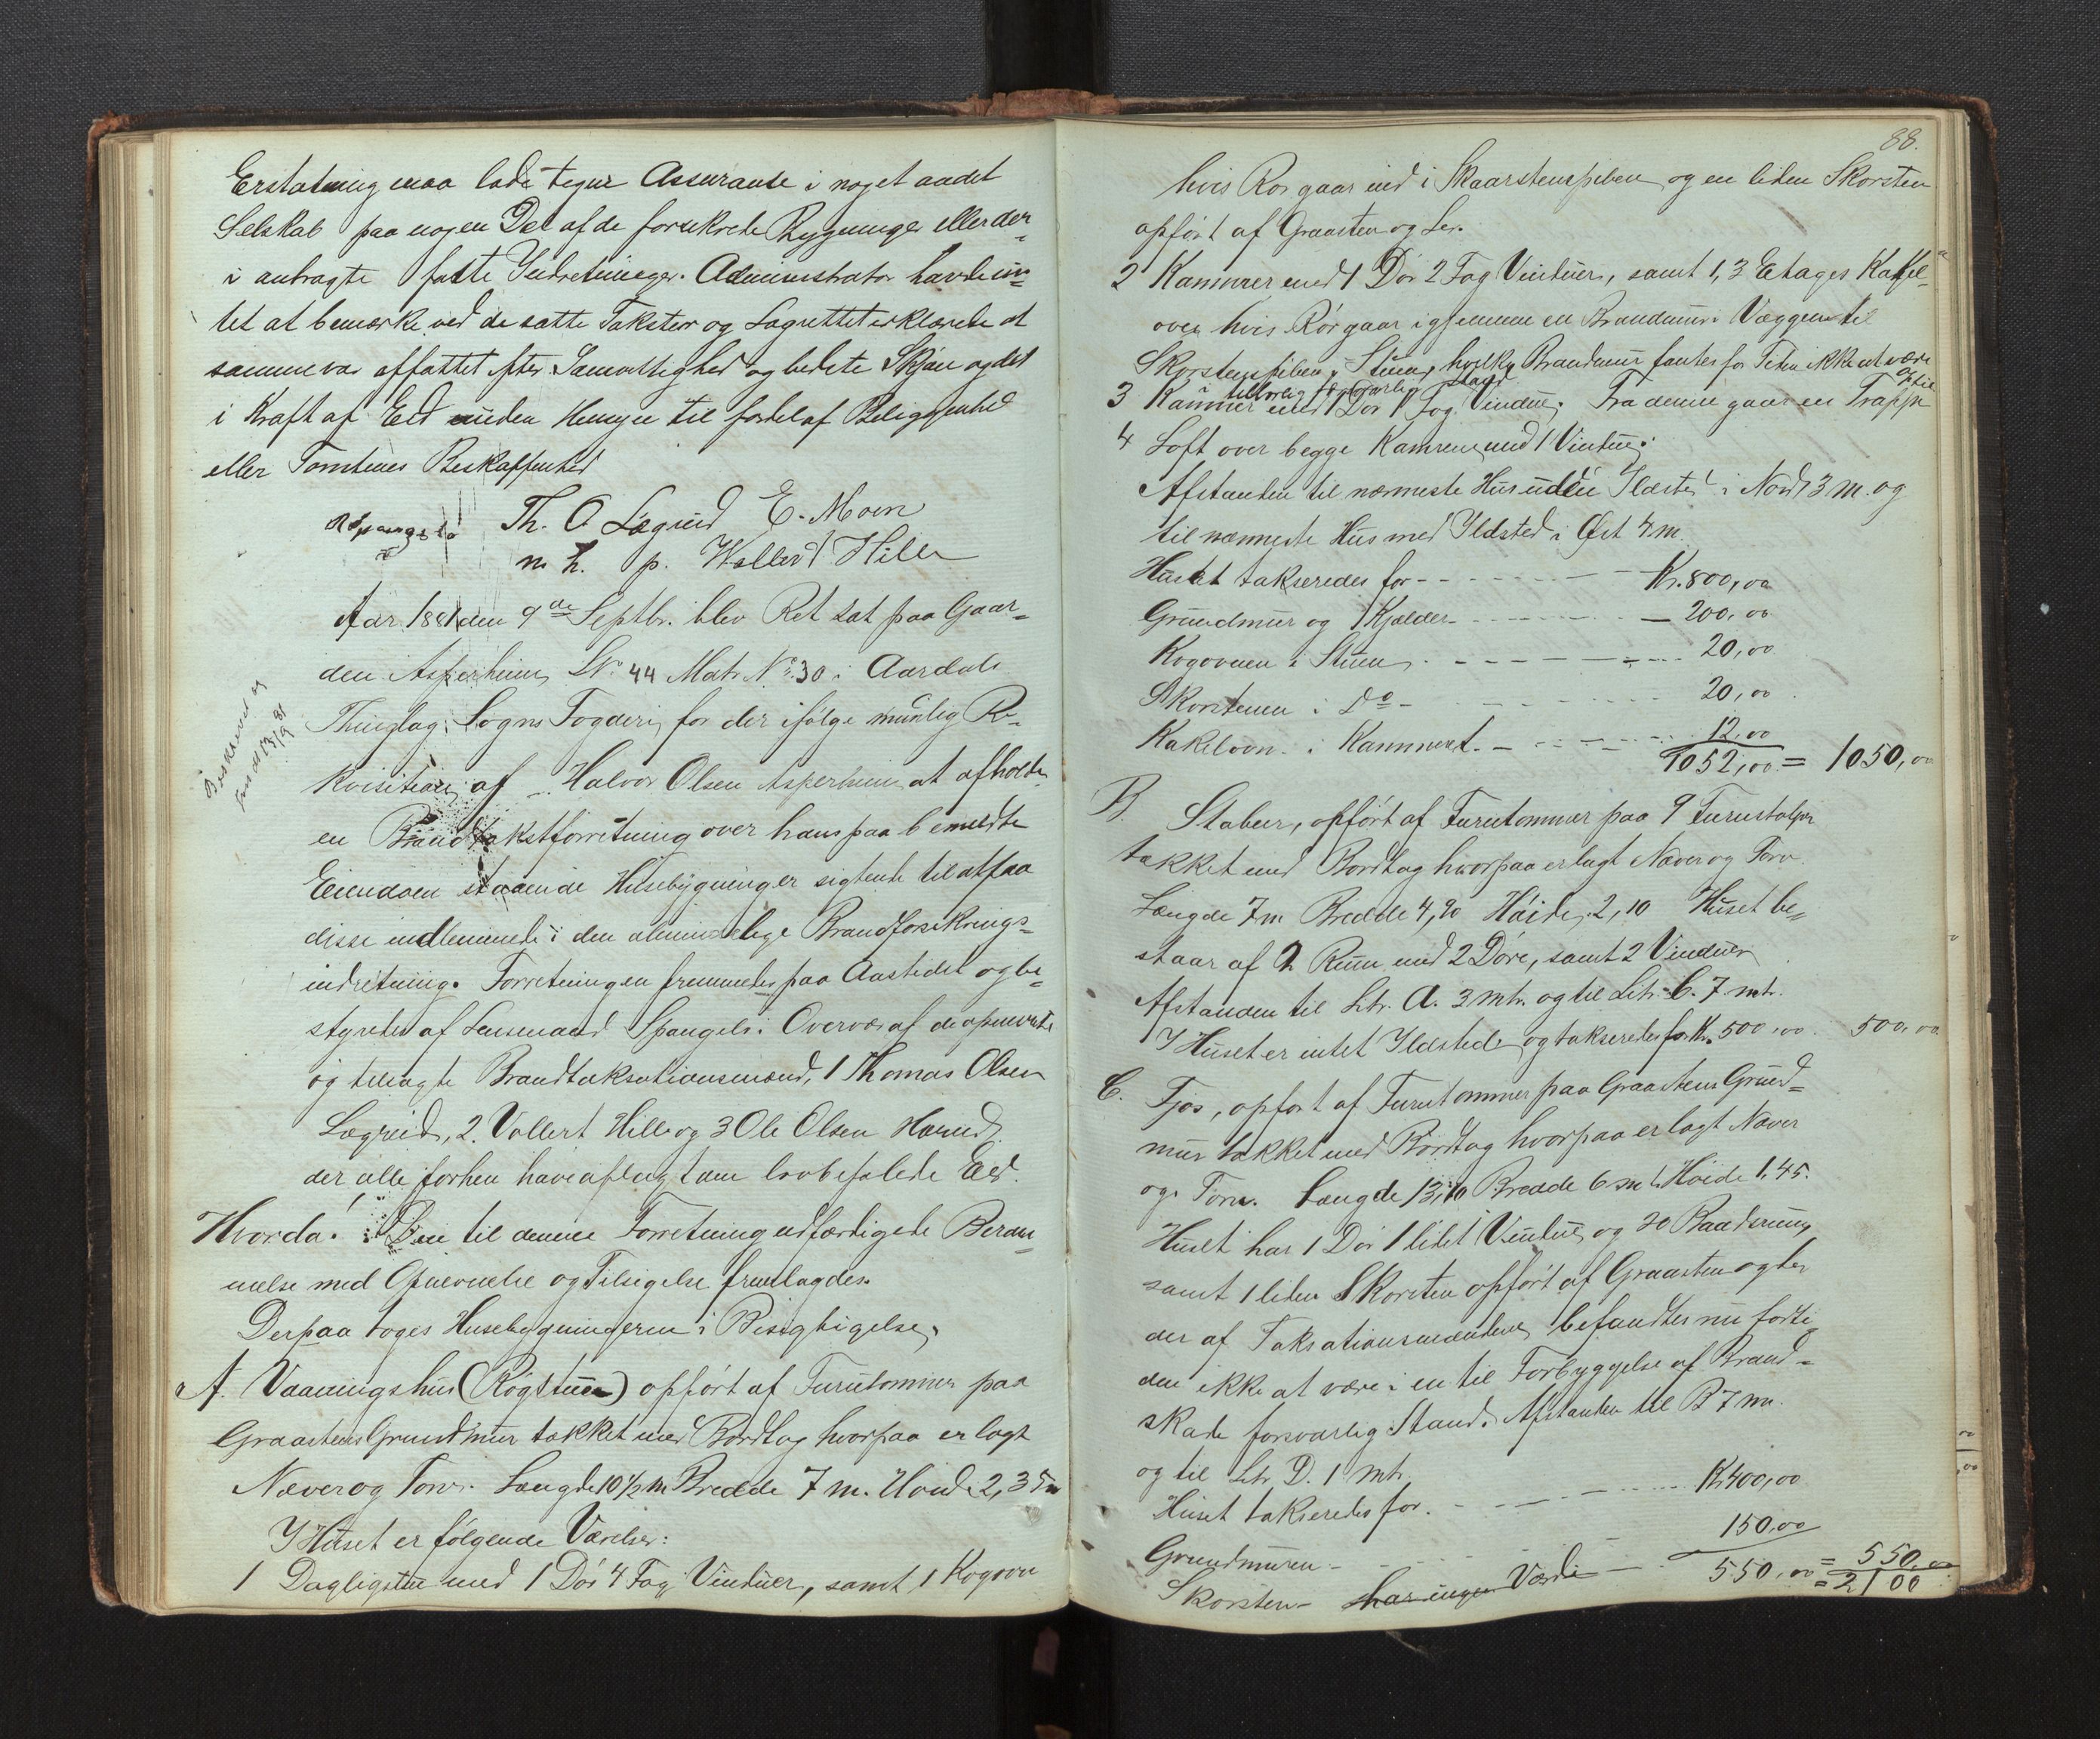 Erstatning maa lade tegne Assurance i noget andet
Selskab paa nogen Del af de forsikrede Bygninger eller der-
i anbragte faste Indretninger. Administrator havde in-
tet at bemærke ved de satte Takster og Lagrettet erklærede at
samme var affattet efter Samvittighed og bedste Skjøn og det
i Kraft af Eed uden Hensyn til fordel af Beliggenhed
eller Tomtens Beskaffenhed
R Spangelo Th. O Lægreid E. Moen
m. h. p. Vollert Hille
Aar 1881 den 9de Septbr. blev Ret sat paa Gaar-
den Asperheim LNo 44 Matr No 30 i Aardals
Thinglag, Sogns Fogderi, for der ifølge mundtlig Re-
kvisition af Halvor Olsen Asperheim at afholde
en Brandtakstforretning over hans paa bemeldte
Eiendom staaende Husebygninger sigtende til at faa
disse indlemmede i den almindelige Brandforsikrings-
indretning. Forretningen fremmedes paa Aastedet og be-
styredes af Lensmand Spangelo i Overvær af de opnævnte
og tilsagte Brandtaksationsmænd, 1 Thomas Olsen
Lægreid, 2. Vollert Hille og 3 Ole Olsen
der alle forhen have aflagt den lovbefalede Eed.
Beskrevet og
13/9 81
Hvorda! Den til denne Forretning udfærdigede Beram-
melse med Opnævnelse og Tilsigelse fremlagdes.
Derpaa toges Husebygningerne i Besigtigelse,
A. Vaaningshus (Røgstue) opført af Furutømmer paa
Graastens Grundmur takket med Bordtag hvorpaa er lagt
Næver og Torv. Længde 10 1/2 m Bredde 7 m. Høide 2,35 m
I Huset er følgende Værelser:
1 Dagligstue med 1 Dør 4 Fag Vinduer, samt 1 Kogovn
88.
hvis Rør gaar ind i Skaarstenspiben og en liden Skorsten
opført af Graasten og Ler.
2 Kammer med 1 Dør 2 Fag Vinduer, samt 1, 3 Etages Kakel-
ovn hvis Rør gaar igjennem en Brandmur i Væggen til
Skorstenspiben i Stuen, hvilken Brandmur fantes for Tiden ikke at være
i tilbørlig forsvarlig stand
3 Kammer med 1 Dør 1 Fag Vindue. Fra denne gaar en Trappe
op til
4 Loft over begge Kamrene med 1 Vindue.
Afstanden til nærmeste Hus uden Ildsted i Nord 3 m. og
til nærmeste Hus med Ildsted i Øst 4 m.
Huset takseredes for - - - - - Kr. 800,00
Grundmur og 1 Kjælder - - - - - 200,00
Kogovnen i Stuen - - - - - 20,00
Skorstenen i Do - - - - - 20,00
Kakelovn i Kammeret. - - - - - 12,00
1052,00 = 1050,00
B. Stabur, opført af Furutømmer paa 9 Furustolper
takket med Bordtag hvorpaa er lagt Næver og Torv.
Længde 7 m Bredde 4,90 Høide, 2,10 Huset be-
staar af 2 Rum med 2 Døre, samt 2 Vinduer
Afstanden til Litr. A. 3 mtr. og til Litr. C. 7 mtr.
I Huset er intet Ildsted og takseredes for Kr. 500,00 500,00
C. Fjøs, opført af Furutømmer paa Graastens Grund-
mur takket med Bordtag hvorpaa er lagt Næver
og Torv. Længde 13,10 Bredde 6 m. Høide 1,45.
Huset har 1 Dør 1 lidet Vindue og 20 Baadsrum,
samt 1 liden Skorsten opført af Graasten og Ler
der af Taksationsmændene befandtes nu forti-
den ikke at være i en til Forbyggelse af Brand-
skade forsvarlig Stand. Afstanden til B 7 m.
og til Litr D. 1 mtr.
Huset takseredes for. - - - - - Kr. 400,00
Grundmuren - - - - - 150,00
Skorsten - har ingen Værdi - 550,00 = 550,00
= 2100